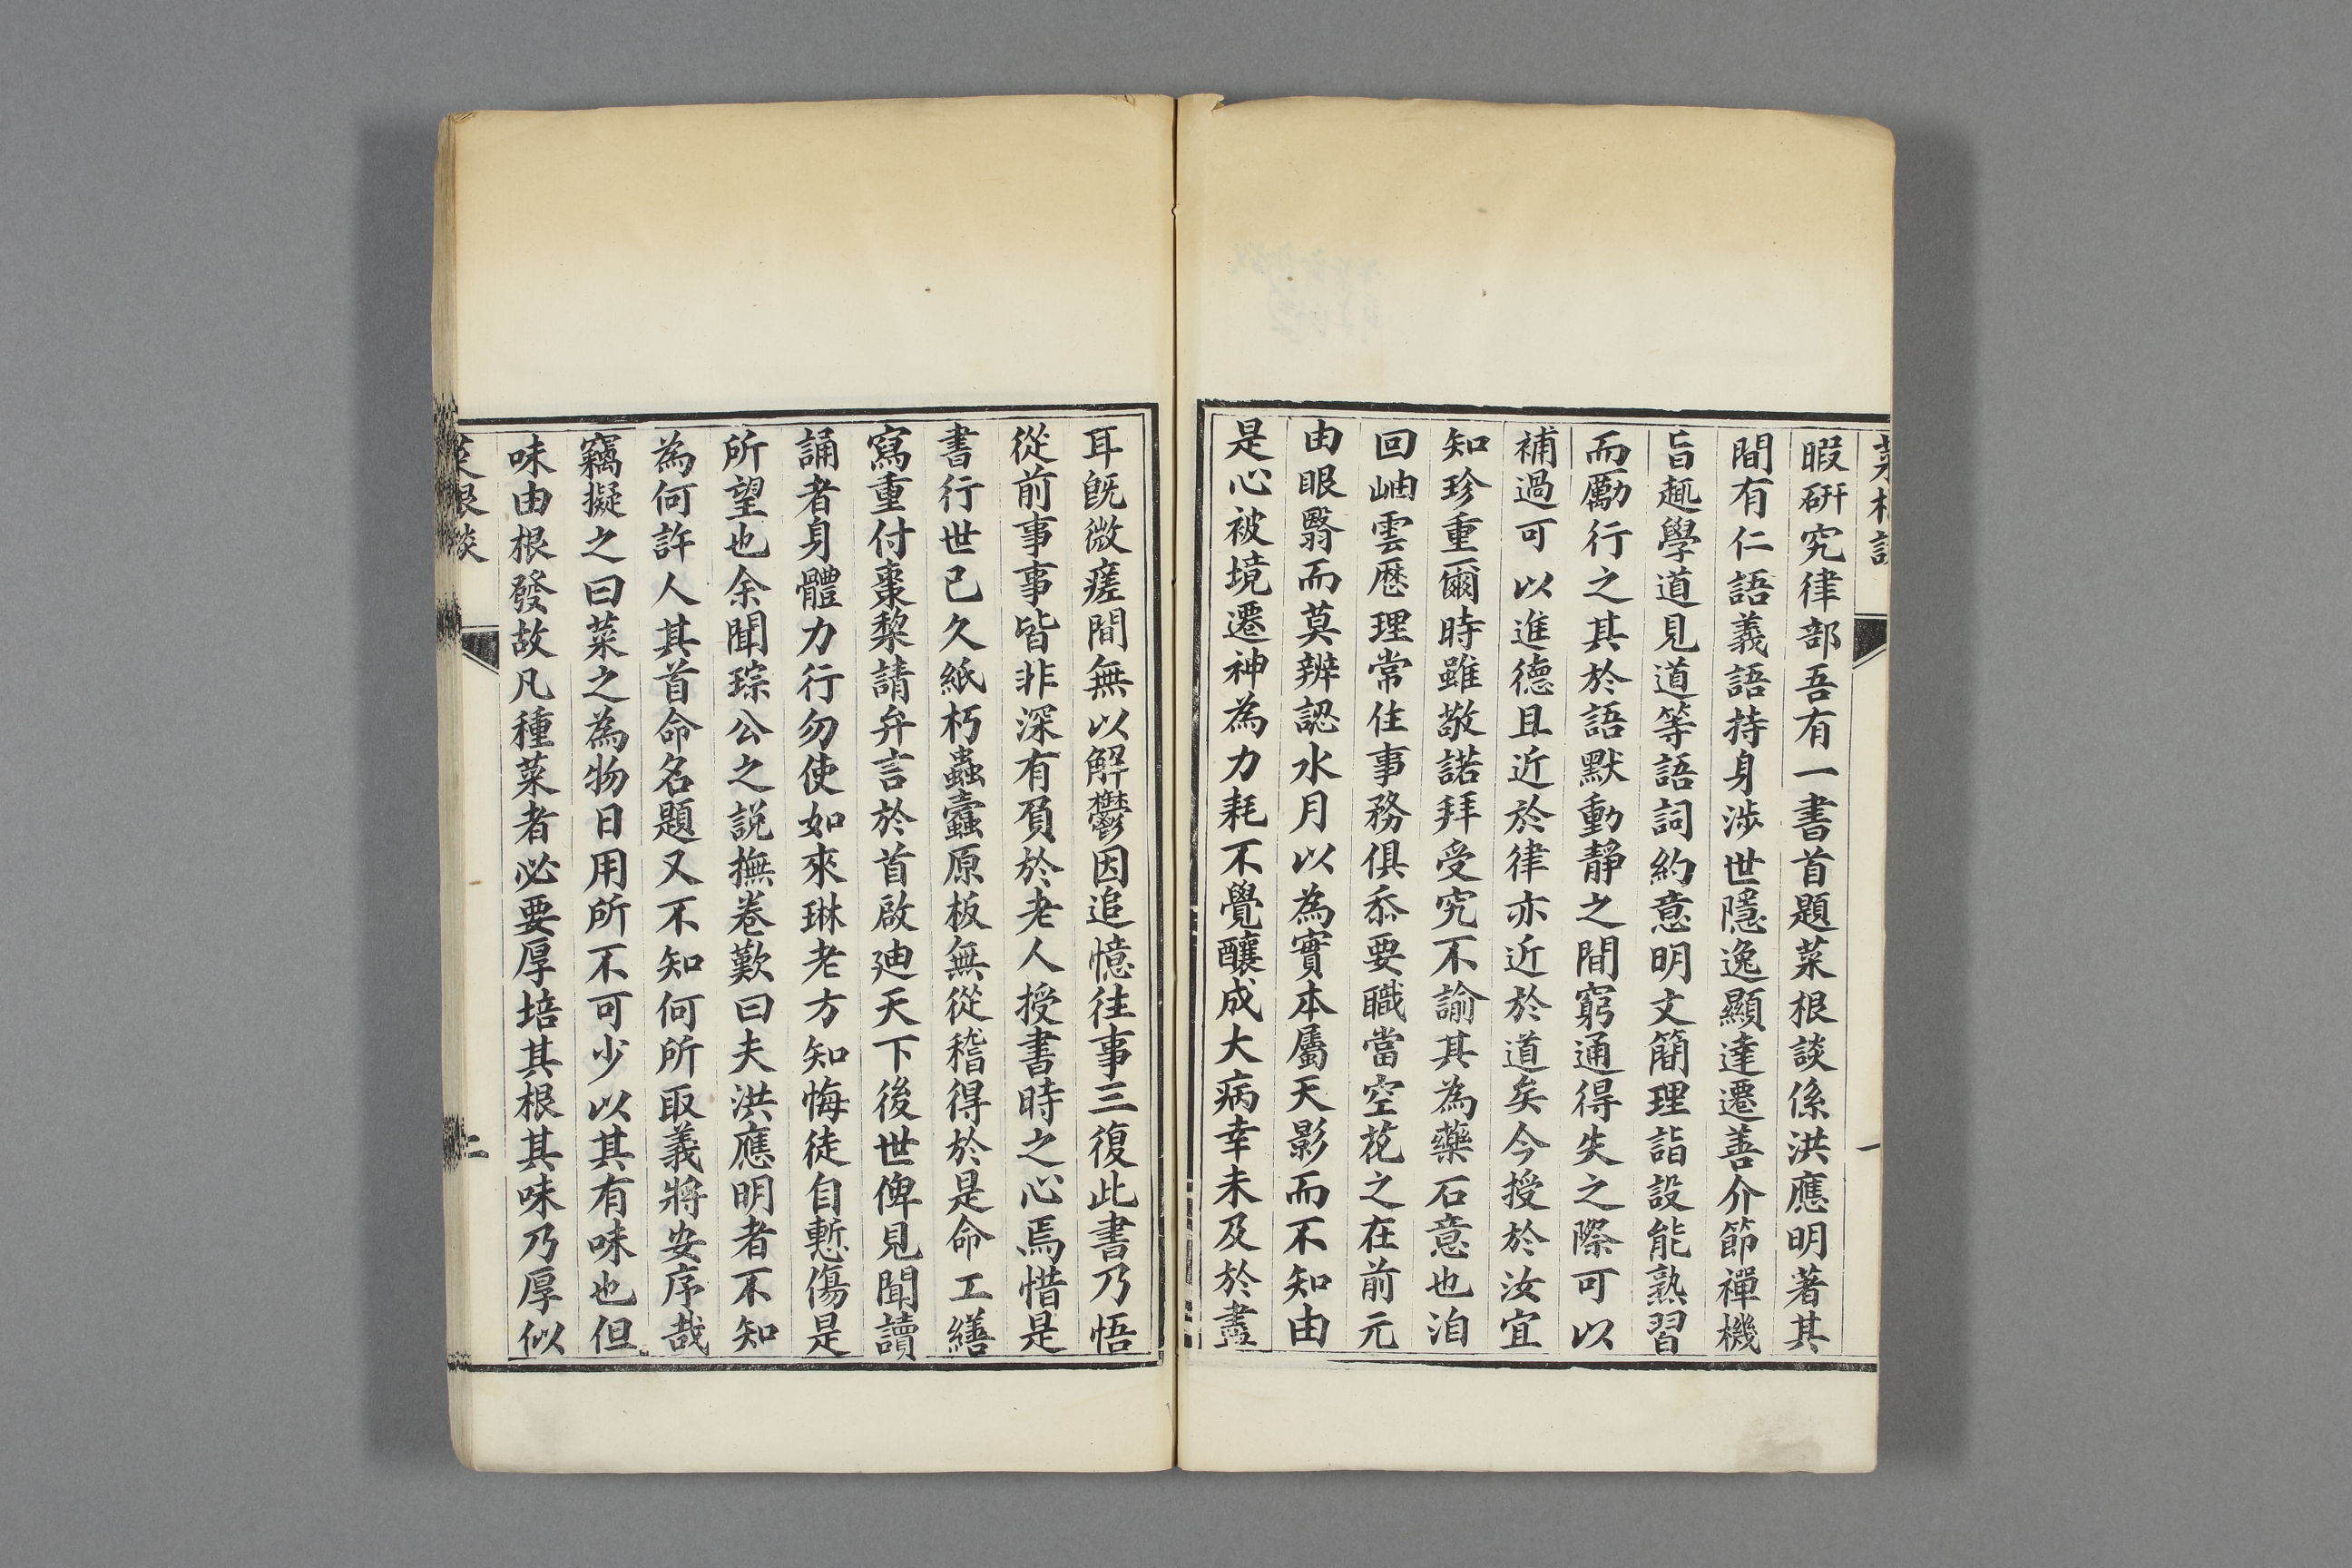 暇研究律部吾有一書首題菜根談係洪應明著其
間有仁語義語持身涉世隱逸顯達遷善介節禪機
旨趣學道見道等語詞約意明文簡理詣設能熟習
而勵行之其於語默動靜之間窮通得失之際可以
補過可以進德且近於律亦近於道矣今授於汝宜
知珍重爾時雖敬諾拜受究不諭其為藥石意也洎
回岫雲歷理常住事務俱忝要職當空花之在前元
由眼翳而莫辨認水月以為實本屬天影而不知由
是心被境遷神為力耗不覺釀成大病幸未及於盡
耳既微瘥間無以解鬱因追憶往事三復此書乃悟
從前事事皆非深有負於老人授書時之心焉惜是
書行世已久紙朽蟲蠹原板無從稽得於是命工繕
寫重付棗棃請弁言於首啟廸天下後世俾見聞讀
誦者身體力行勿使如來琳老方知悔徒自慙傷是
所望也余聞琮公之説撫卷歎曰夫洪應明者不知
為何許人其首命名題又不知何所取義將安序哉
竊擬之曰菜之為物日用所不可少以其有味也但
味由根發故凡種菜者必要厚培其根其味乃厚似
菜根談
二